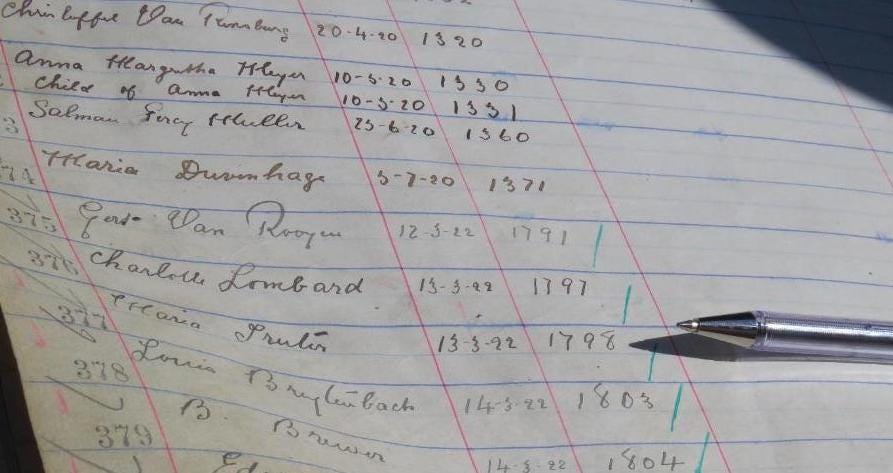 Van Rensburg 20-4-20 1320
Anna Margretha Meyer 10-5-20 1330
Child of Anna Meyer 10-5-20 1331
3 Salman Percy Muller 25-6-20 1360
74 Maria Duvenhage 5-7-20 1371
375 Gert Van Rooyen 12-3-22 1791
376 Charlotte Lombard 13-3-22 1797
377 Maria 13-3-22 1798
378 Louis Breytenbach 14-3-22 1803
379 B. Brewer 14-3-22 1804